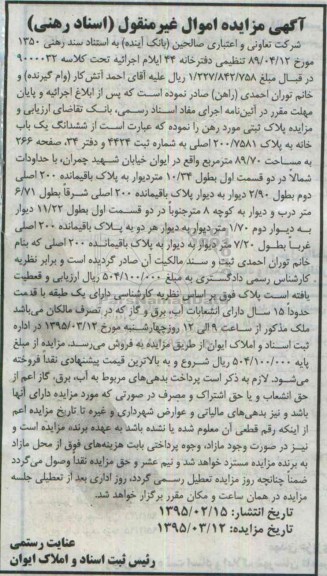 آگهی مزایده اموال غیرمنقول (اسناد رهنی)
شرکت تعاونی و اعتباری صالحین (بانک آینده) به استناد سند رهنی ۱۳۵۰
مورخ ۸۹/۰۴/۱۲ تنظیمی دفترخانه ۴۴ ایلام اجرائیه تحت کلاسه ۹۰۰۰۰۳۲
در قبال مبلغ ۱/۲۲۷/۸۴۲/۷۵۸ ریال علیه آقای احمد آتش‌کار (وام گیرنده) و
خانم توران احمدی (راهن) صادر نموده است که پس از ابلاغ اجرائیه و پایان
مهلت مقرر در آئین‌نامه اجرای مفاد اسناد رسمی، بانک تقاضای ارزیابی و
مزایده پلاک ثبتی مورد رهن را نموده که عبارت است از ششدانگ یک باب
خانه به پلاک ۲۰۰/۷۵۸۱ اصلی به شماره ثبت ۴۴۲۳ و دفتر ۳۴، صفحه ۲۶۶
به مساحت ۸۹/۷۰ مترمربع واقع در ایوان خیابان شهید چمران، با حدودات
شمالاً در دو قسمت اول بطول ۱۰/۳۴ متردیوار به پلاک باقیمانده ۲۰۰ اصلی
دوم بطول ۲/۹۰ دیوار به دیوار پلاک باقیمانده ۲۰۰ اصلی شرقاً بطول ۶/۷۱
متر درب و دیوار به کوچه ۸ مترجنوباً در دو قسمت اول بطول ۱۱/۲۲ دیوار
به دیوار دوم ۱/۷۰ متر دیوار به دیوار هر دو به پلاک باقیمانده ۲۰۰ اصلی
غرباً بطول ۷/۲۰ متر دیوار به دیوار به پلاک باقیمانده ۲۰۰ اصلی که بنام
خانم توران احمدی ثبت و سند مالکیت آن صادر گردیده است و برابر نظریه
کارشناس رسمی دادگستری به مبلغ ۵۰۴/۱۰۰/۰۰۰ ریال ارزیابی و قطعیت
یافته است پلاک فوق بر اساس نظریه کارشناسی دارای یک طبقه با قدمت
حدوداً ۱۵ سال دارای انشعابات آب، برق و گاز که در تصرف مالکان می‌باشد
ملک مذکور از ساعت ۹ الی ۱۲ روزچهارشنبه مورخ ۱۳۹۵/۰۳/۱۲ در اداره
ثبت اسناد و املاک ایوان از طریق مزایده به فروش می‌رسد. مزایده از مبلغ
پایه ۵۰۴/۱۰۰/۰۰۰ ریال شروع و به بالاترین قیمت پیشنهادی نقداً فروخته
می‌شود. لازم به ذکر است پرداخت بدهی‌های مربوط به آب، برق، گاز اعم از
حق انشعاب و یا حق اشتراک و مصرف در صورتی که مورد مزایده دارای آنها
باشد و نیز بدهی‌های مالیاتی و عوارض شهرداری و غیره تا تاریخ مزایده اعم
از اینکه رقم قطعی آن معلوم شده یا نشده باشد به عهده برنده مزایده است و
نیز در صورت وجود مازاد، وجوه پرداختی بابت هزینه‌های فوق از محل مازاد
به برنده مزایده مسترد خواهد شد و نیم عشر و حق مزایده نقداً وصول می‌گردد
ضمناً چنانچه روز مزایده تعطیل رسمی گردد، روز اداری بعد از تعطیلی جلسه
مزایده در همان ساعت و مکان مقرر برگزار خواهد شد.
تاریخ انتشار: ۱۳۹۵/۰۲/۱۵
تاریخ مزایده: ۱۳۹۵/۰۳/۱۲
عنایت رستمی
رئیس ثبت اسناد و املاک ایوان